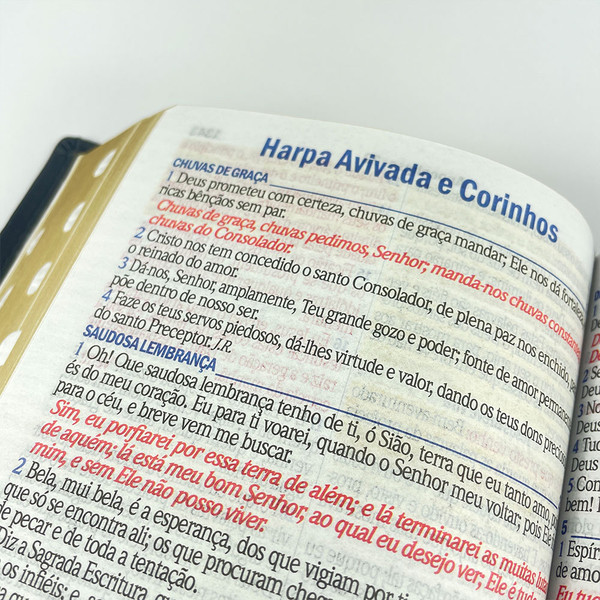 Harpa Avivada e Corinhos
CHUVAS DE GRAÇA
1 Deus prometeu com certeza, chuvas de graça mandar; Ele nos dá fortaleza
ricas bênçãos sem par.
Chuvas de graça, chuvas pedimos, Senhor; manda-nos chuvas constantes
chuvas do Consolador.
2 Cristo nos tem concedido o santo Consolador, de plena paz nos enchido,
o reinado do amor.
3 Dá-nos, Senhor, amplamente, Teu grande gozo e poder; fonte de amor permanen
põe dentro de nosso ser.
4 Faze os teus servos piedosos, dá-lhes virtude e valor, dando os teus dons precio
do santo Preceptor. J.R.
SAUDOSA LEMBRANÇA
1 Oh! Que saudosa lembrança tenho de ti, ó Sião, terra que eu tanto amo,
és do meu coração. Eu para ti voarei, quando o Senhor meu voltar; pois Ele
para o céu, e breve vem me buscar.
Sim, eu porfiarei por essa terra de além; e lá terminarei as muitas lutas
de aquém, lá está meu bom Senhor, ao qual eu desejo ver; Ele é tudo
mim, e sem Ele não posso viver.
2 Bela, mui bela, é a esperança, dos que vigiam por ti
que só se encontra ali; os que procuram cheg
de pecar e de toda a tentação.
Diz a Sagrada Escritura,
os infiéis; e
5
1 Espíri
de amo
Eu tu